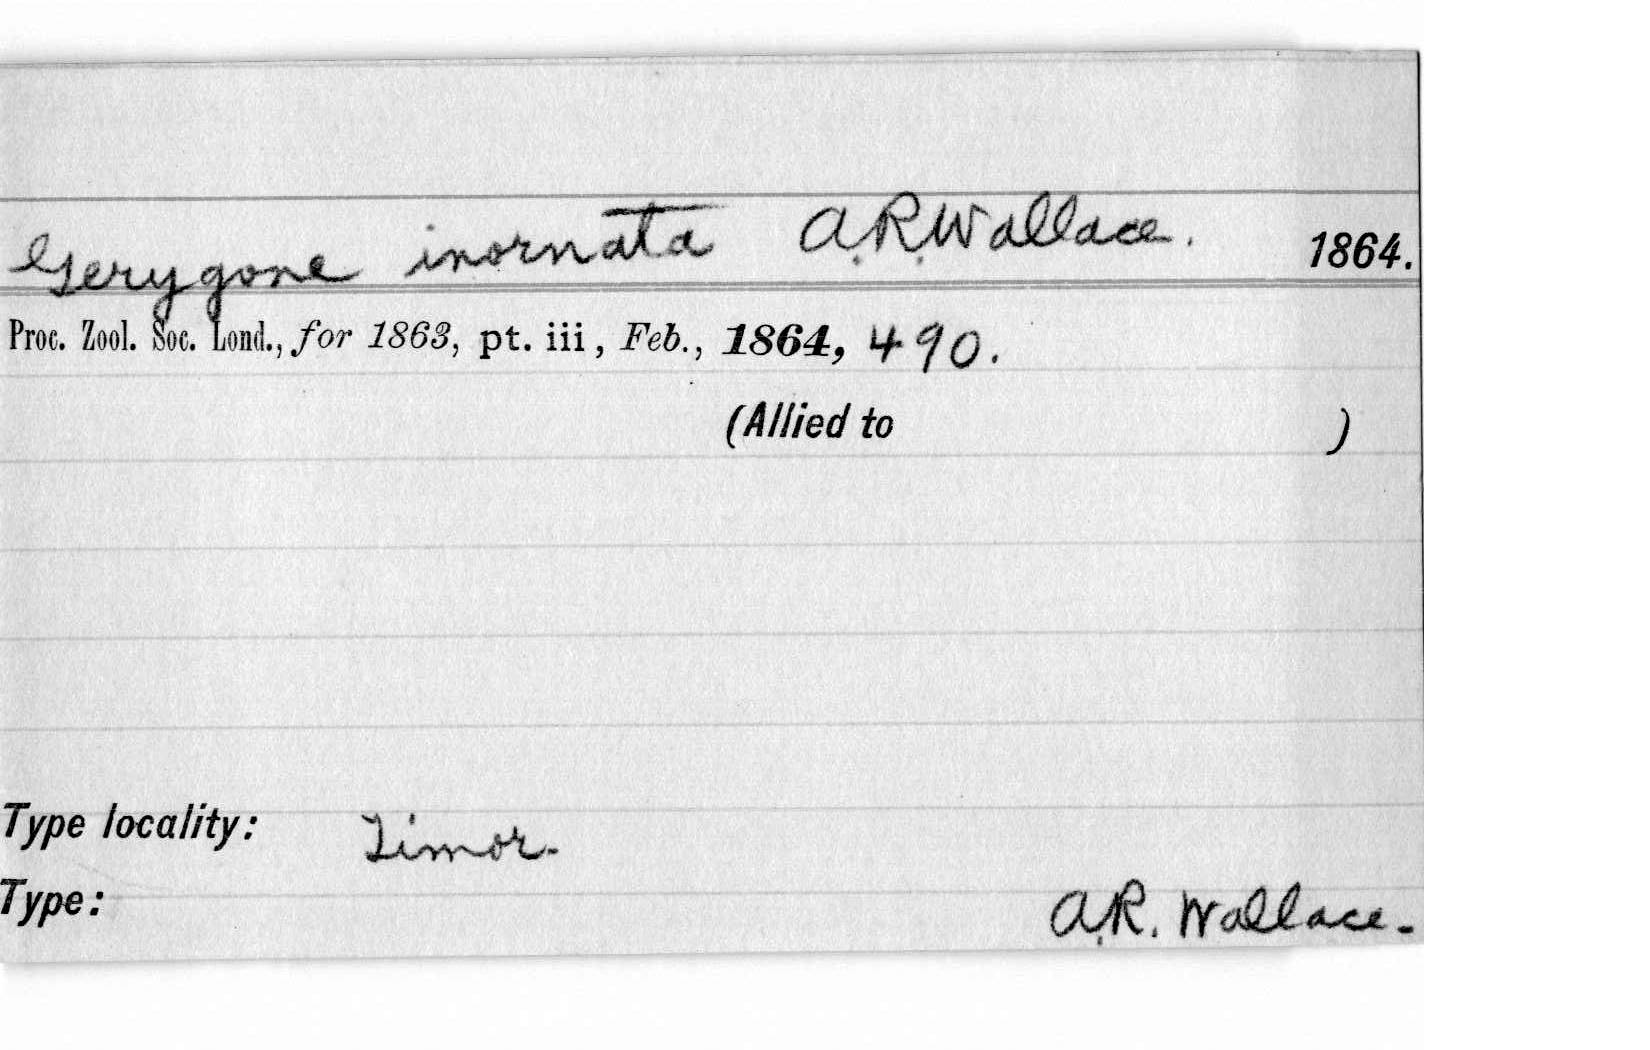 Gerygone inornata A.R.Wallace. 1864.
Proc. Zool. Soc. Lond., for 1863, pt. iii, Feb., 1864, 490.
(Allied to )
Type locality: Timor.
Type: A.R. Wallace.